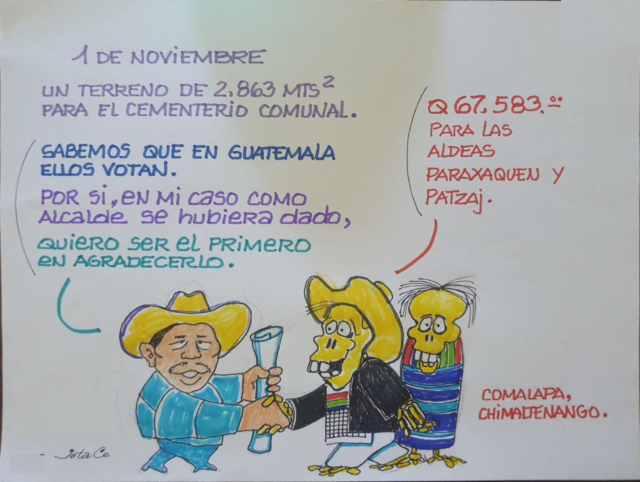 1 DE NOVIEMBRE
UN TERRENO DE 2,863 MTS²
PARA EL CEMENTERIO COMUNAL.
SABEMOS QUE EN GUATEMALA
ELLOS VOTAN.
POR SI, EN MI CASO COMO
ALCALDE SE HUBIERA DADO,
QUIERO SER EL PRIMERO
EN AGRADECERLO.
Q 67,583.oo
PARA LAS
ALDEAS
PARAXAQUEN Y
PATZAJ.
COMALAPA,
CHIMALTENANGO.
JotaCe